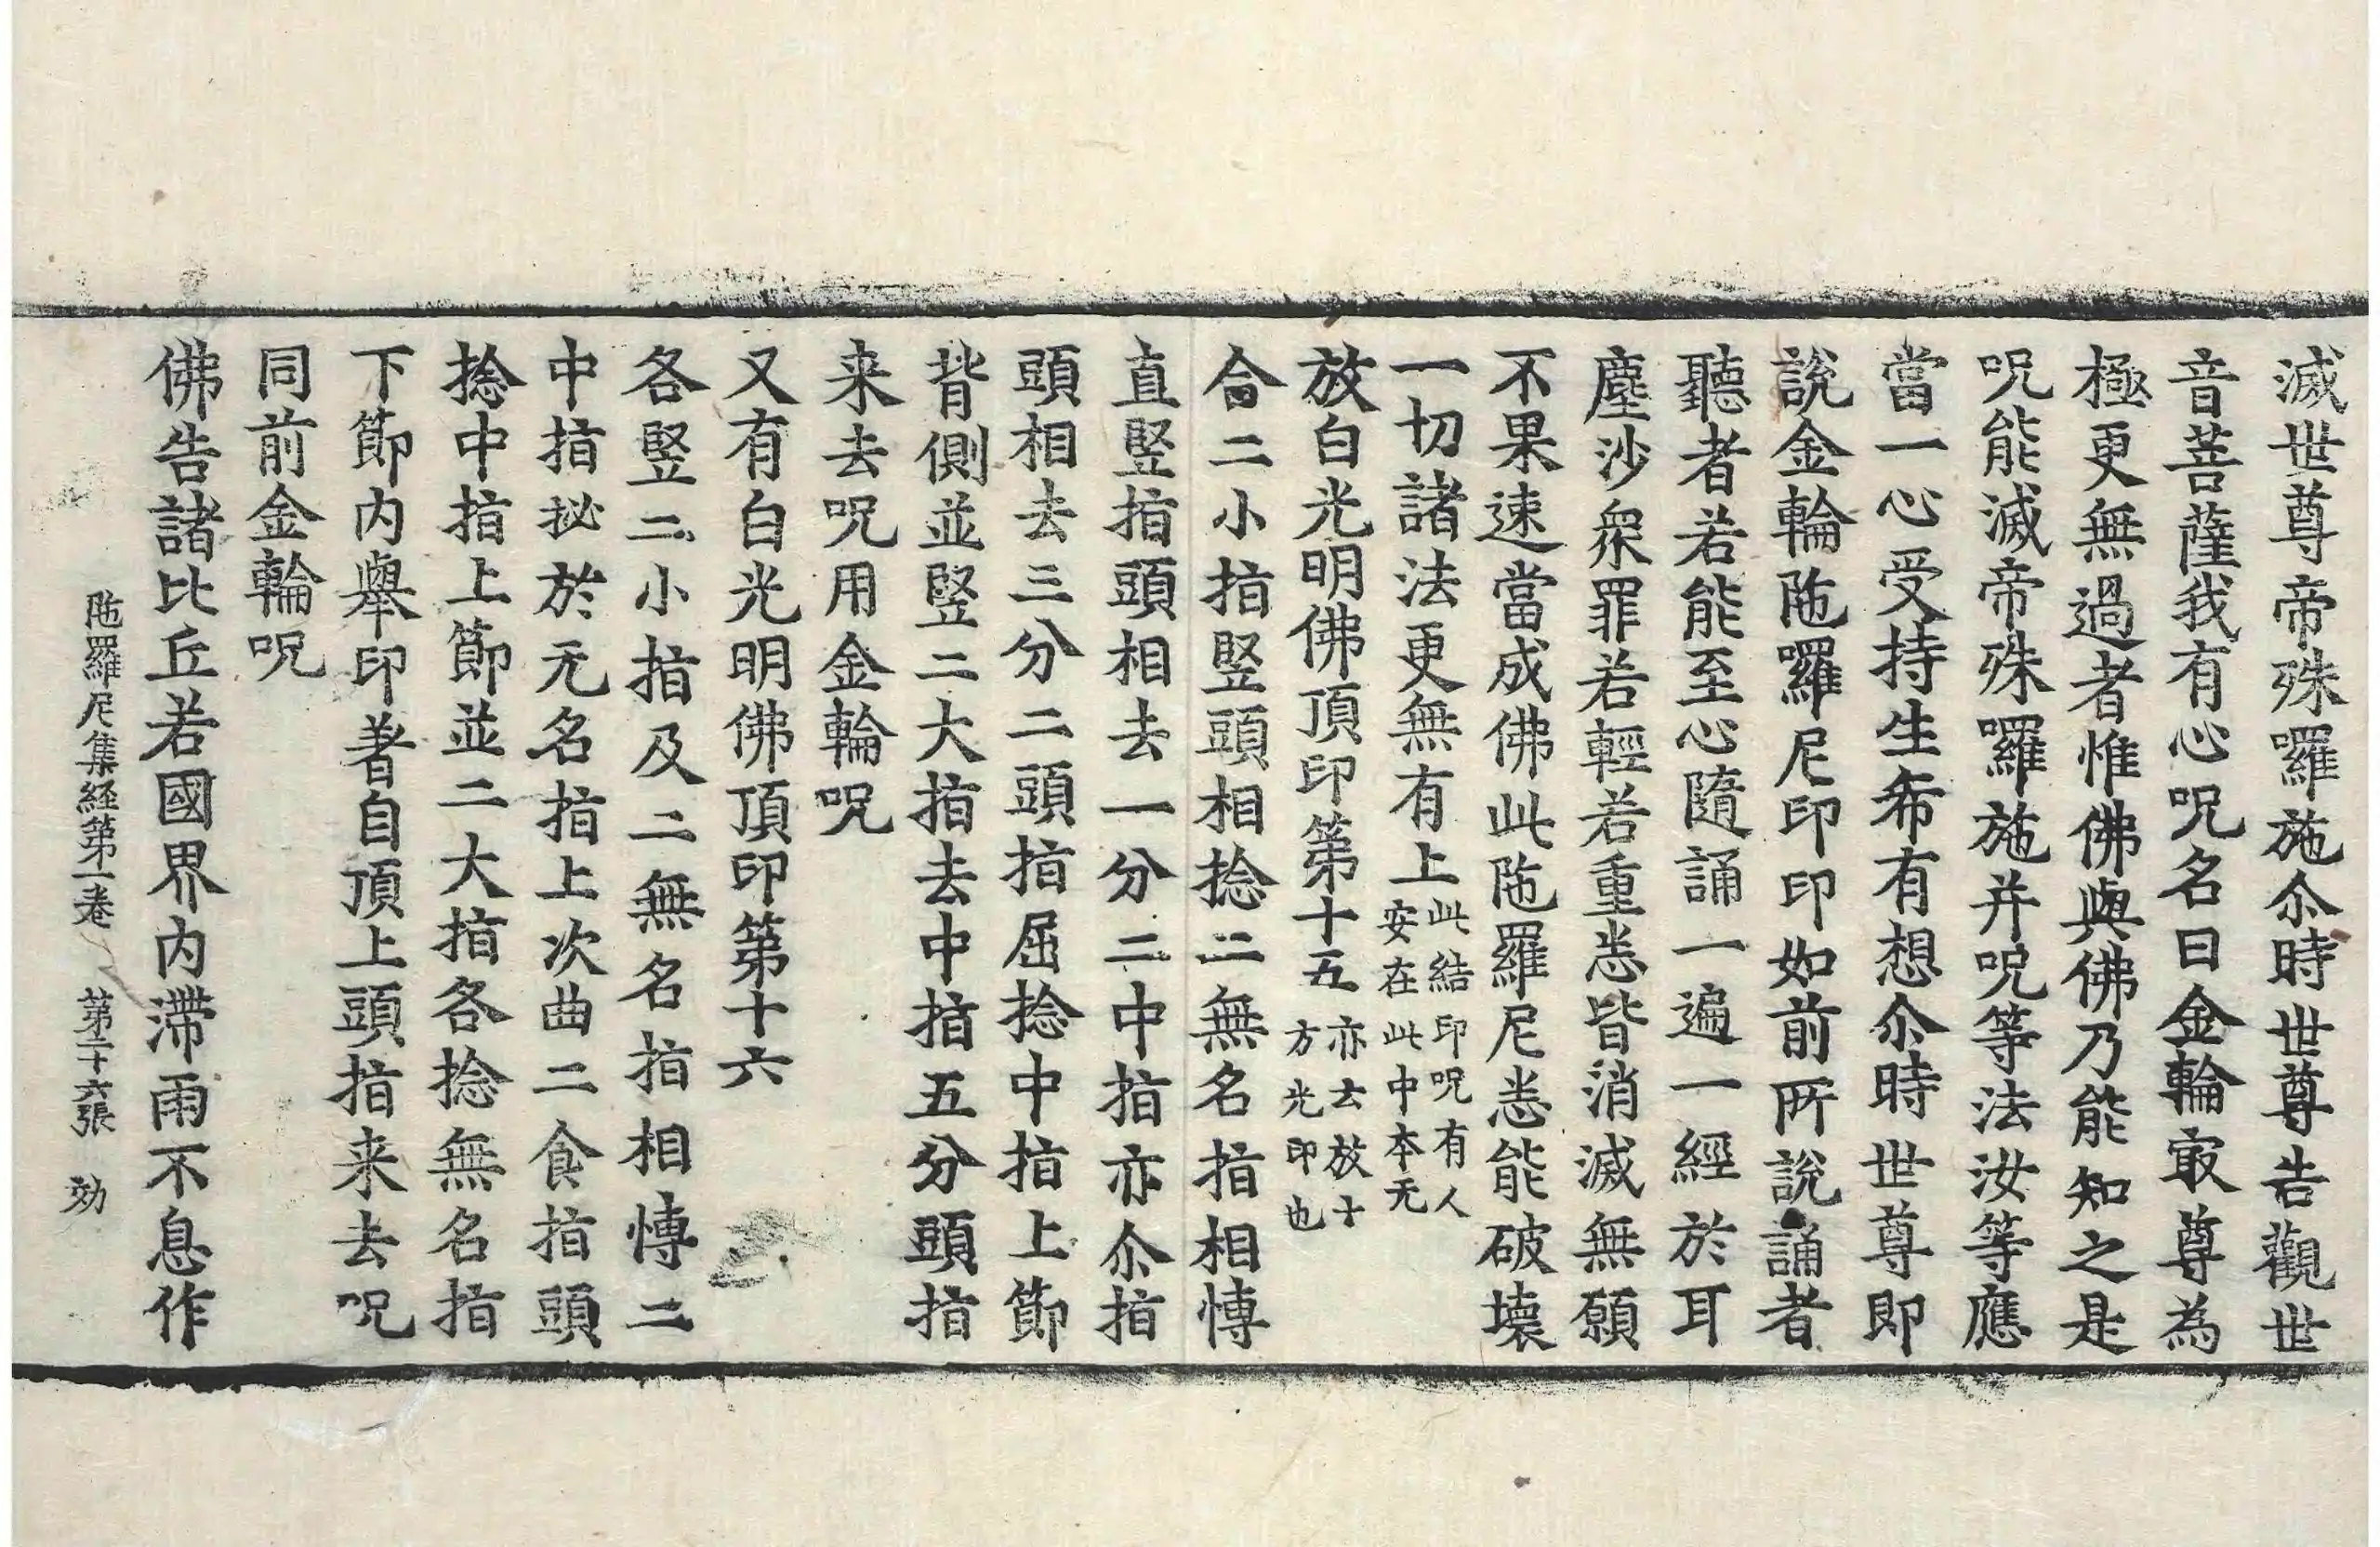 滅世尊帝殊囉施尒時世尊告觀世
音菩薩我有心呪名曰金輪㝡尊為
極更無過者惟佛與佛乃能知之是
呪能滅帝殊囉施并呪等法汝等應
當一心受持生希有想尒時世尊即
說金輪陁囉尼印印如前所說誦者
聽者若能至心隨誦一遍一經於耳
塵沙衆罪若輕若重悉皆消滅無願
不果速當成佛此陁羅尼悉能破壞
一切諸法更無有上此結印呪有人
安在此中本无
放白光明佛頂印第十五亦云放十
方光印也
合二小指竪頭相捻二無名指相愽
直竪指頭相去一分二中指亦尒指
頭相去三分二頭指屈捻中指上節
背側並竪二大指去中指五分頭指
来去呪用金輪呪
又有白光明佛頂印第十六
各竪二小指及二無名指相愽二
中指拟於无名指上次曲二食指頭
捻中指上節並二大指各捻無名指
下節内舉印著自頂上頭指来去呪
同前金輪呪
佛告諸比丘若國界内滯雨不息作
陁羅尼集経第一卷 第二十六張 効